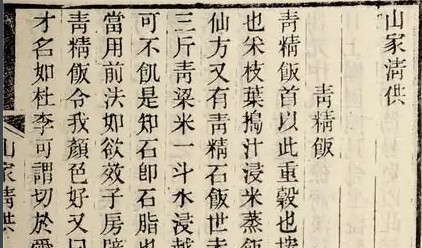 山家清供
青精飯
青精飯首以此重穀也按
也采枝葉搗汁浸米蒸飯
仙方又有青精石飯世未
三斤青粱米一斗水浸越
可不飢是知石卽石脂也
當用前法如欲效子房辟
青精飯令我顏色好又曰
才名如杜李可謂切於愛
山家清供